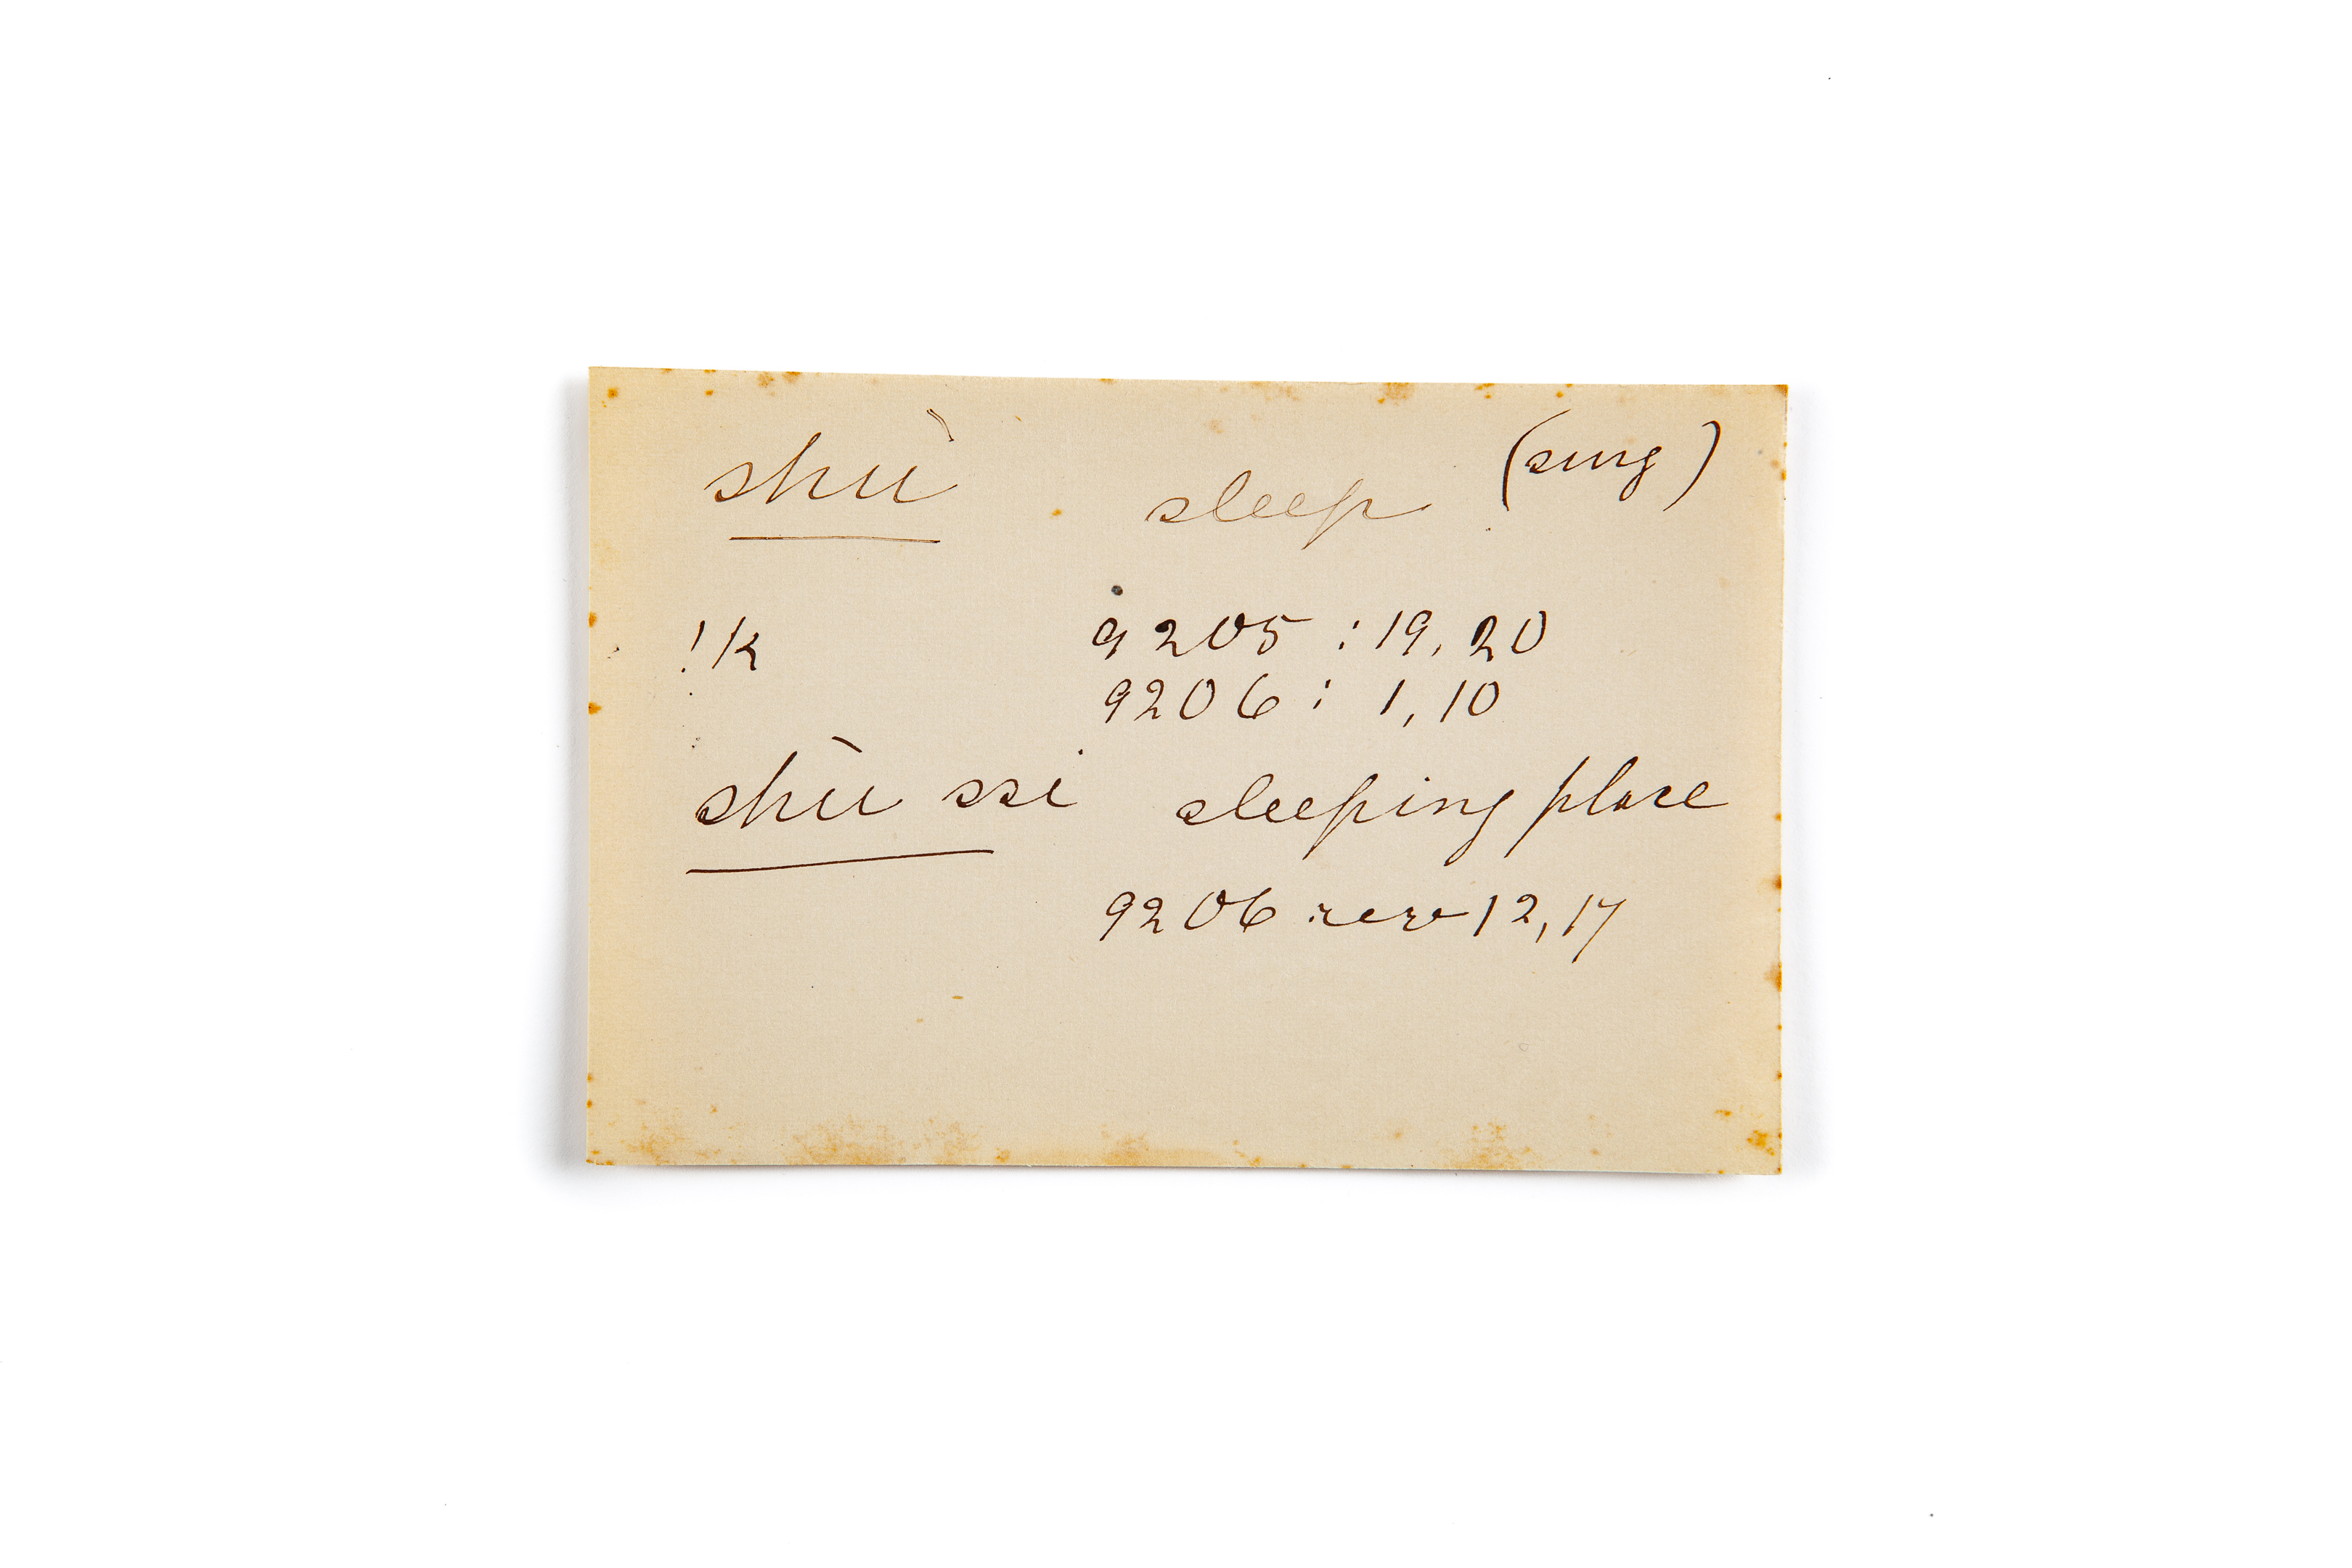 shùi sleep (sing)
!k 9205 : 19, 20
9206 : 1, 10
shùi ssi sleeping place
9206 rev 12, 17